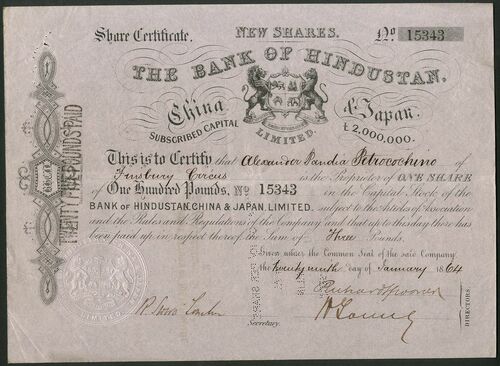 Share Certificate.
NEW SHARES.
No 15343
THE BANK OF HINDUSTAN,
China & Japan.
SUBSCRIBED CAPITAL £2,000,000.
LIMITED.
TWENTY FIVE POUNDS PAID
This is to Certify that Alexander Pandia Petrocochino of
Finsbury Circus is the Proprietor of ONE SHARE
of One Hundred Pounds, No 15343 in the Capital Stock of the
BANK OF HINDUSTAN, CHINA & JAPAN, LIMITED, subject to the Articles of Association
and the Rules and Regulations of the Company and that up to this day there has
been paid up in respect thereof the Sum of Three Pounds.
Given under the Common Seal of the said Company,
the twenty ninth day of January 1864
Secretary.
DIRECTORS.